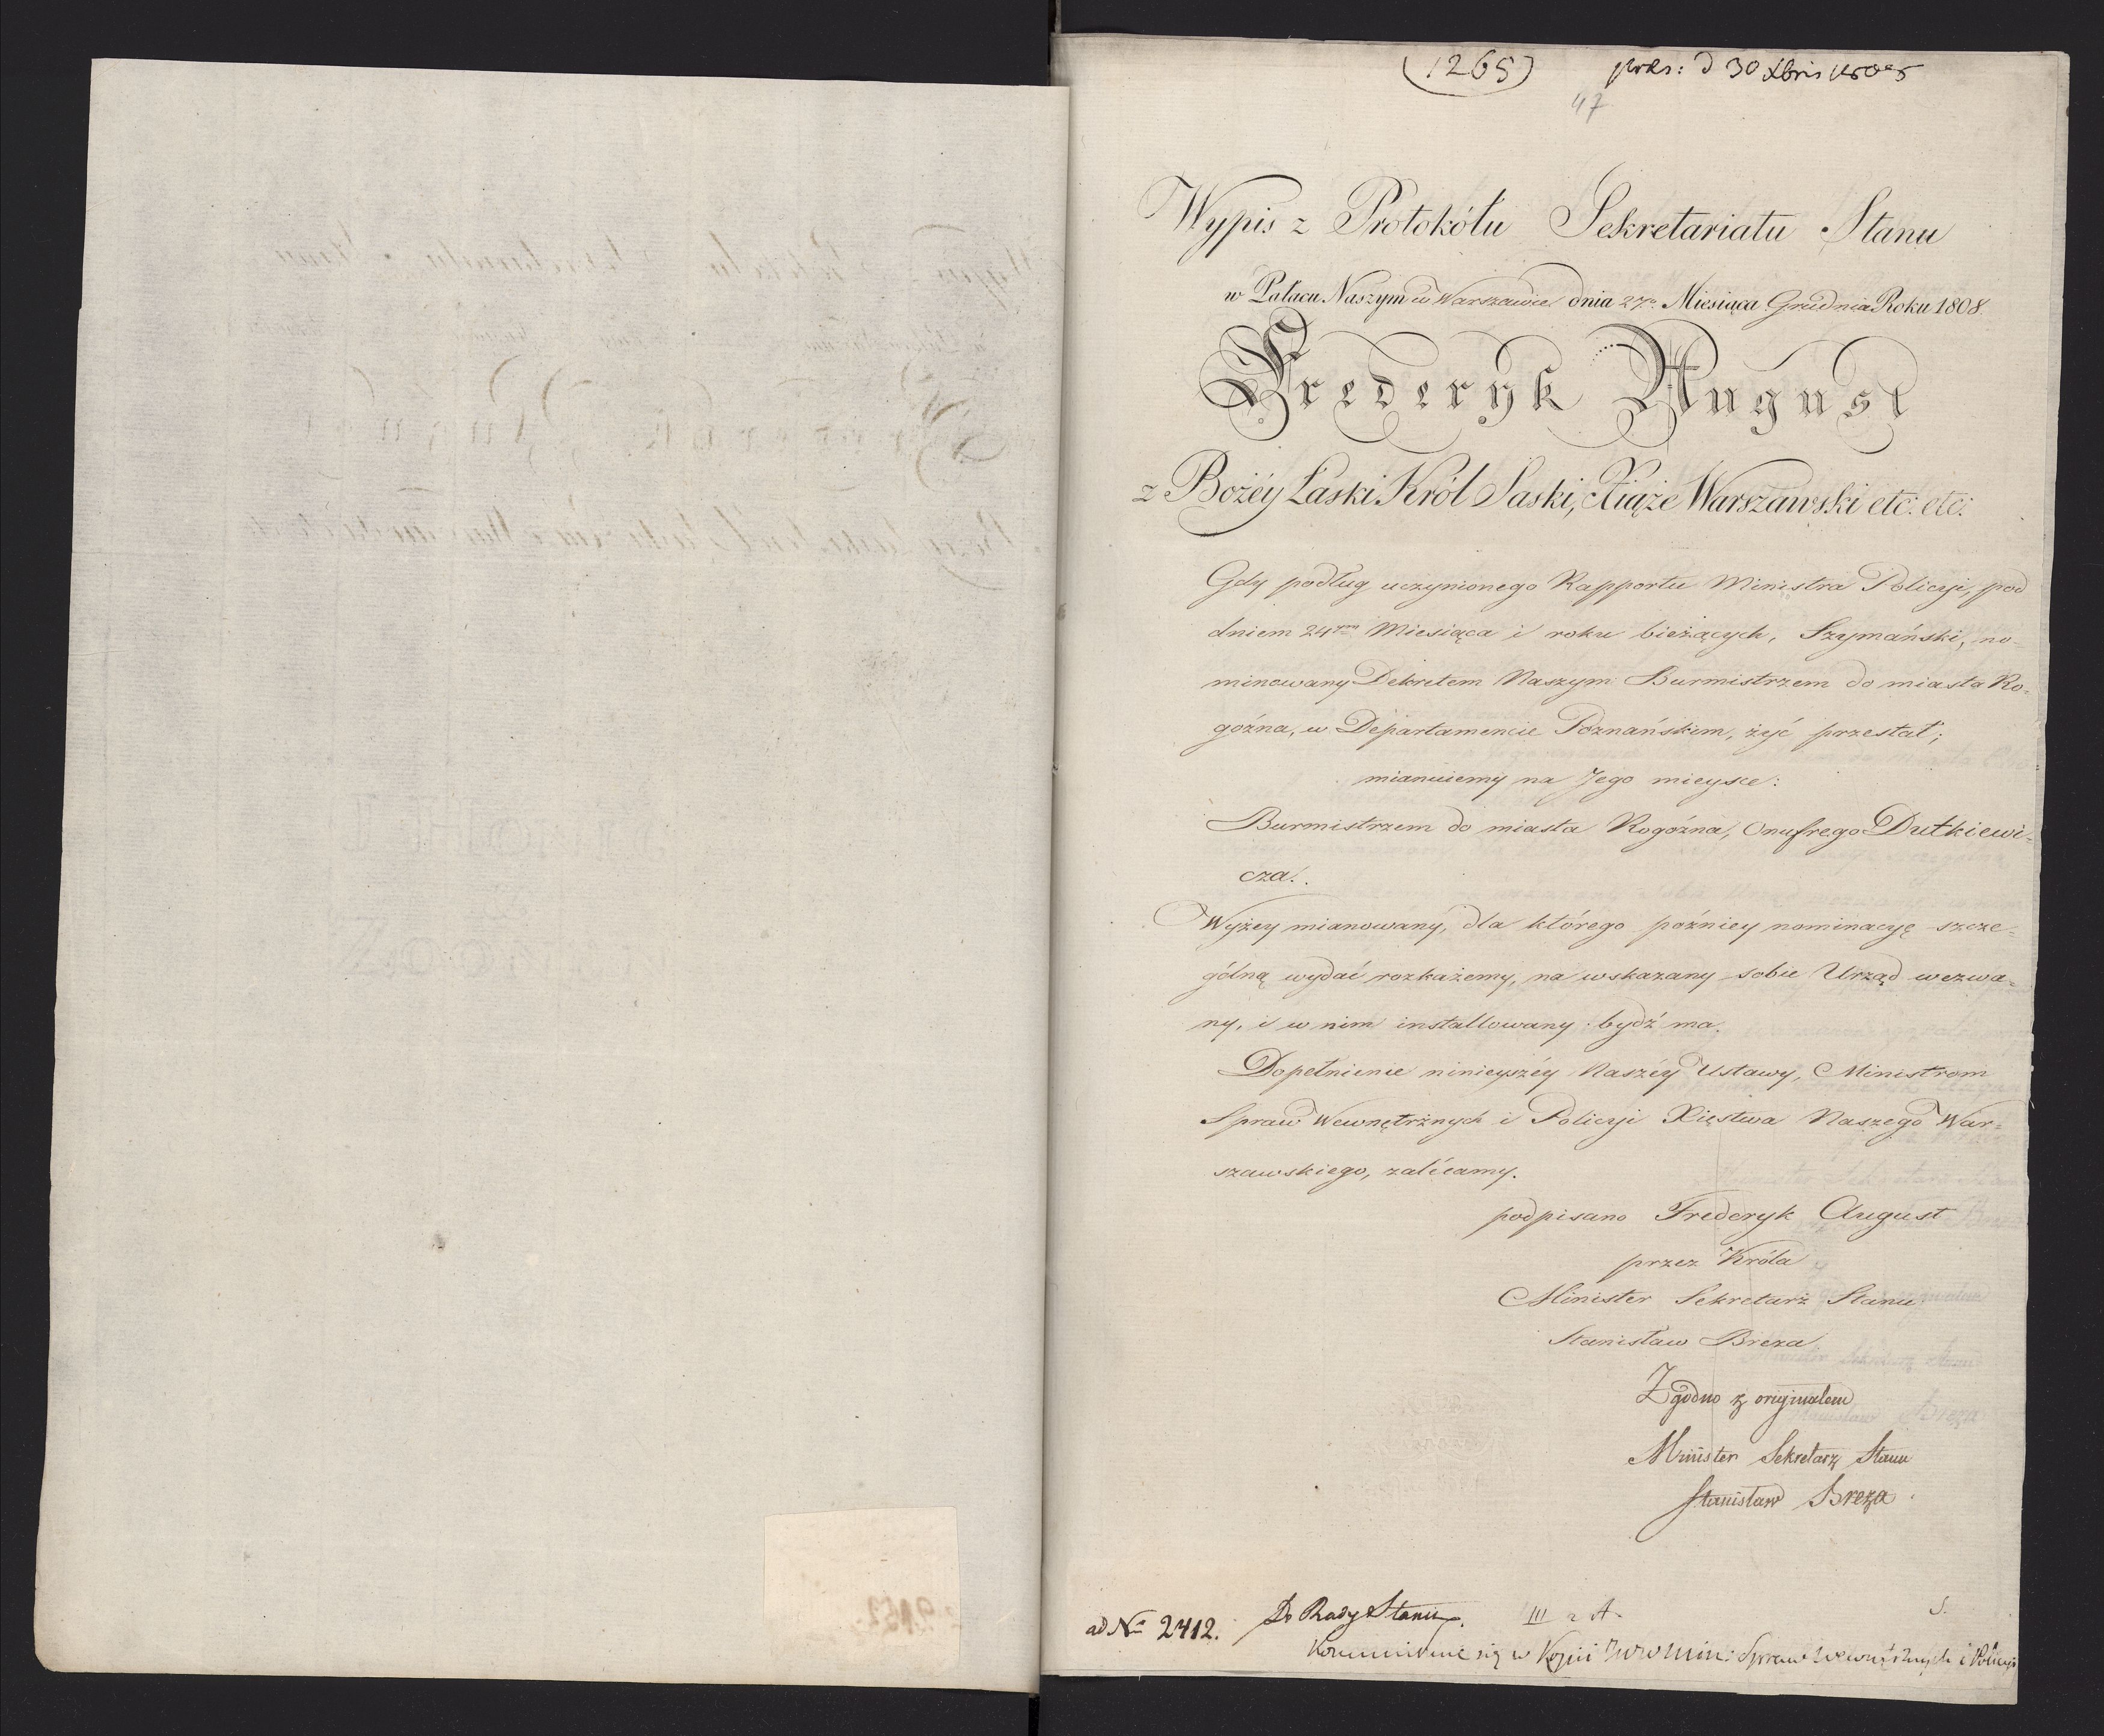 (1265) præs: d 30 Xbris 1808
47
Wypis z Protokółu Sekretariatu Stanu
w Pałacu Naszym w Warszawie dnia 27º Miesiąca Grudnia Roku 1808.
Frederyk August
z Bożéy Łaski Król Saski, Xiąże Warszawski etc: etc:
Gdy podług uczynionego Rapportu Ministra Policyi, pod
dniem 24ym Miesiąca i roku bieżących, Szymański, no-
minowany Dekretem Naszym Burmistrzem do miasta Ro-
goźna, w Departamencie Poznańskim, żyć przestał;
mianuiemy na Jego mieysce:
Burmistrzem do miasta Rogoźna, Onufrego Dutkiewi-
cza.
Wyżey mianowany, dla którego poźniey nominacyę szcze-
gólną wydać rozkażemy, na wskazany sobie Urząd wezwa-
ny, i w nim installowany bydź ma.
Dopełnienie ninieyszéy Naszéy Ustawy, Ministrom
Spraw Wewnętrznych i Policyi Xięstwa Naszego War-
szawskiego, zalécamy.
podpisano Frederyk August
przez Króla
Minister Sekretarz Stanu
Stanisław Breza
Zgodno z oryginałem
Minister Sekretarz Stanu
Stanisław Breza.
ad No 2412. Do Rady Stanu. III 2 A. S.
w Kopii JWW Min: Spraw Wewnętrznych i Policyi